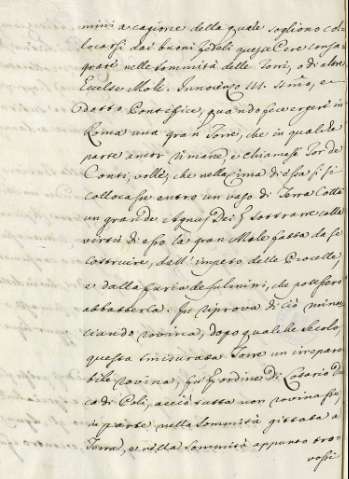 mini a cagione della quale sogliono col
locarsi dai buoni fedeli queste Cere consa
grate nelle sommità delle Torri, o di altre
Eccelse Moli. Innocenzo III.
detto Pontefice, quando fece ergere in
Roma una gran Torre, che in qualche
parte ancor rimane, e chiamasi Tor de
Conti, volle, che nella cima di essa si
collocasse entro un vaso di Terra Cotta
un grande Agnus Dei sottrarre colla
virtù di esso la gran Mole fatta da se
costruire, dall' impeto delle Procelle,
e dalla furia de fulmini, che potessero
abbatterla. In riprova di ciò minac
ciando rovina, dopo qualche secolo,
questa smisurata Torre un irrepara
bile rovina, fù ordine di Du
ca di Poli, acciò tutta non rovinasse,
in parte nella sommità gittata a
Terra, e nella sommità appunto tro
vossi